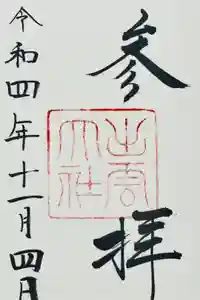 参拝
出雲大社
令和四年十一月四日